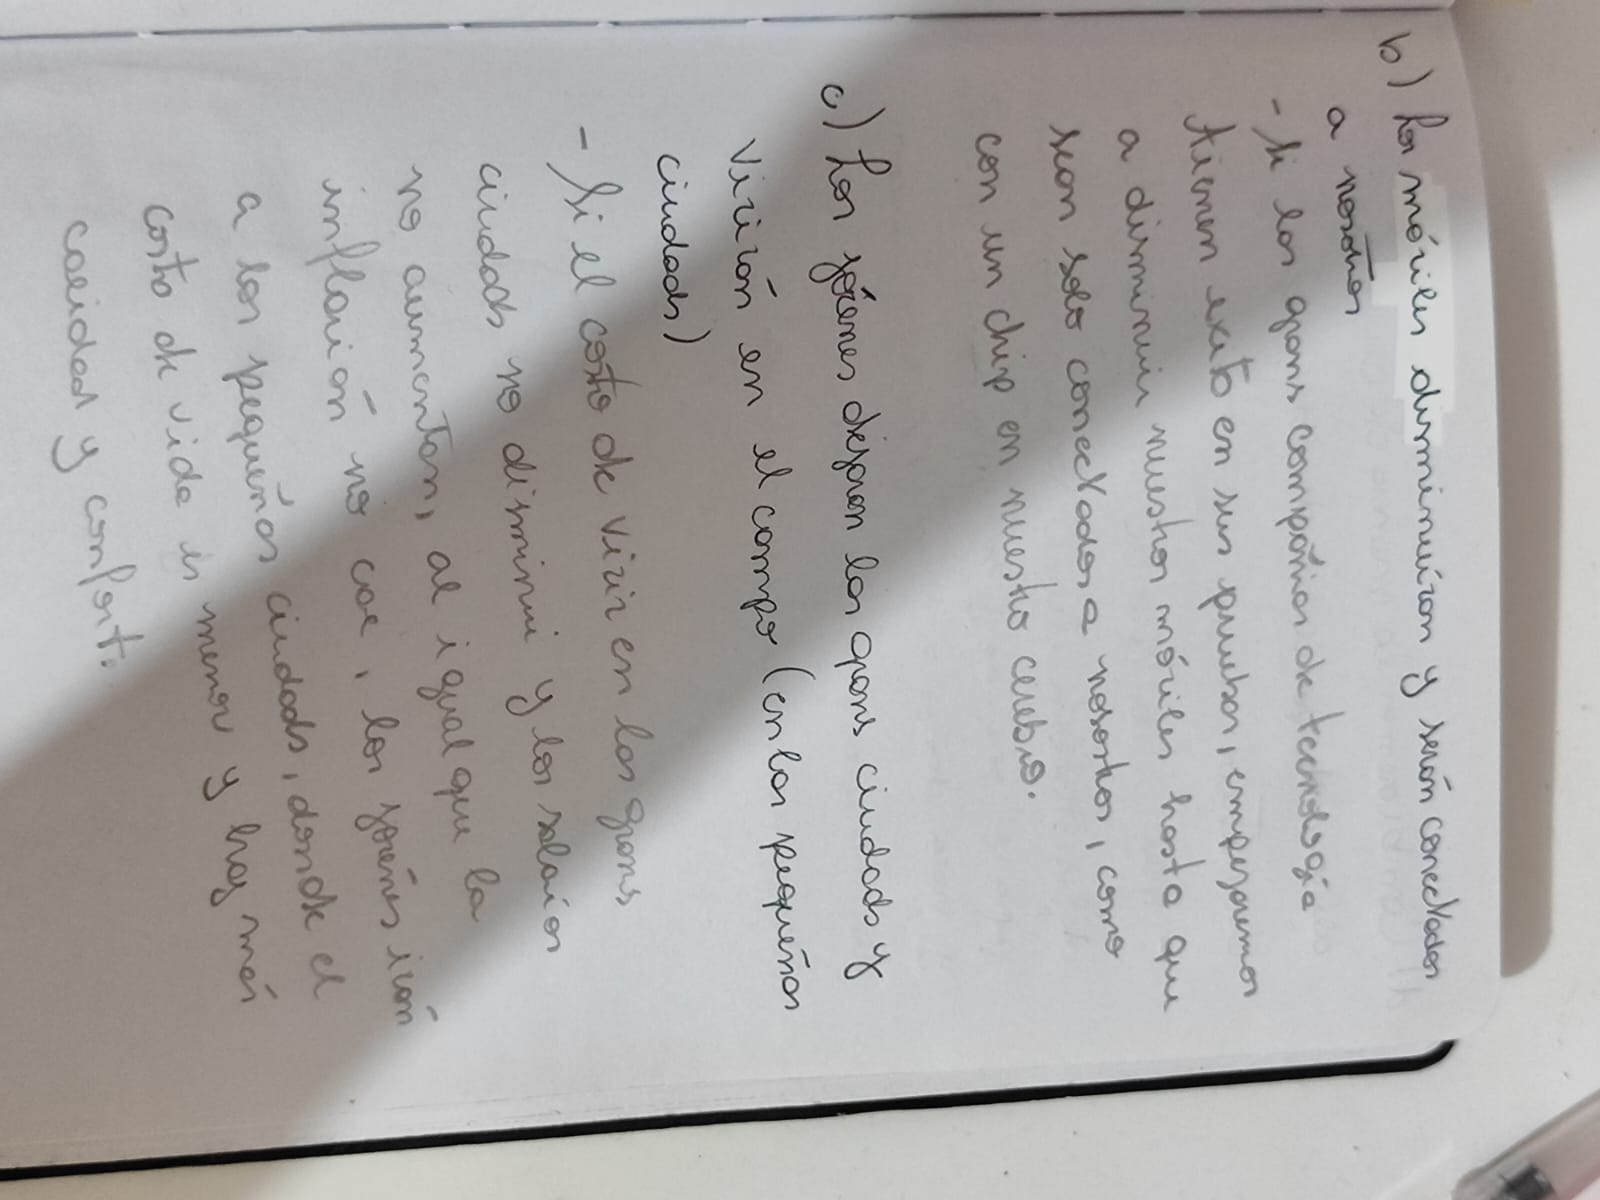 b) Los móviles disminuiron y serón conectados
a nosotros
- Si las grans compañias de tecnología
tienen exito en sus pruebas, empezaremos
a disminuir nuestros móviles hasta que
sean solo conectados a nosostros, como
con un chip en nuestro cerebro.
c) Los jóvenes dejaran las grans ciudads y
vivirán en el campo (en las pequeñas
ciudads)
- Si el costo de vivir en las grans
ciudads no disminui y los salarios
no aumentan, al igual que la
inflación no cae, los joveñes irán
a las pequeñas ciudads, donde el
costo de vida es menor y hay más
y confort.